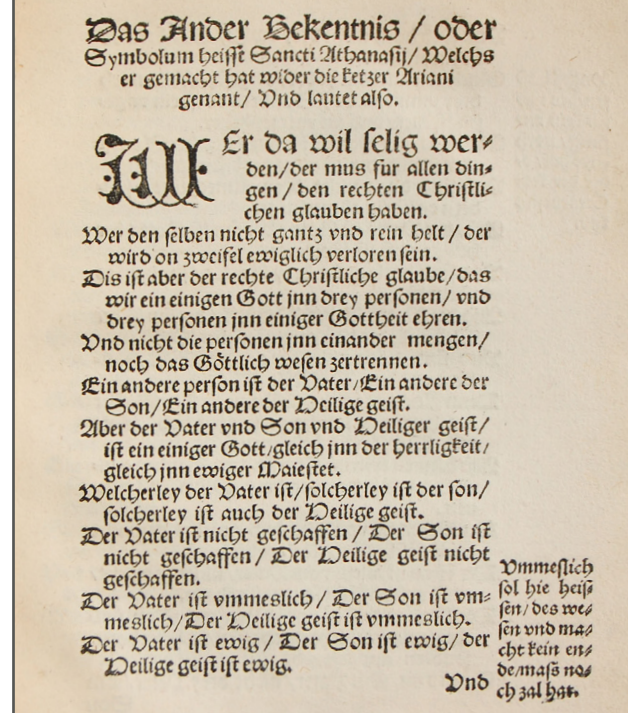 Das Ander Bekentnis / oder
Symbolum heisst Sancti Athanasij / Welchs
er gemacht hat wider die ketzer Ariani
genant / Vnd lautet also.
WEr da wil selig wer⸗
den / der mus fur allen din⸗
gen / den rechten Christli⸗
chen glauben haben.
Wer den selben nicht gantz vnd rein helt / der
wird on zweifel ewiglich verloren sein.
Dis ist aber der rechte Christliche glaube / das
wir ein einigen Gott jnn drey personen / vnd
drey personen jnn einiger Gottheit ehren.
Vnd nicht die personen jnn einander mengen /
noch das Göttlich wesen zertrennen.
Ein andere person ist der Vater / Ein andere der
Son / Ein andere der Heilige geist.
Aber der Vater vnd Son vnd Heiliger geist /
ist ein einiger Gott / gleich jnn der herrligkeit /
gleich jnn ewiger Maiestet.
Welcherley der Vater ist / solcherley ist der son /
solcherley ist auch der Heilige geist.
Der Vater ist nicht geschaffen / Der Son ist
nicht geschaffen / Der Heilige geist nicht
geschaffen.
Der Vater ist vnmeslich / Der Son ist vm⸗
meslich / Der Heilige geist ist vmmeslich.
Der Vater ist ewig / Der Son ist ewig / der
Heilige geist ist ewig.
Vmmeslich
sol hie heis⸗
sen / des we⸗
sen vnd ma⸗
cht kein en⸗
de / mass no⸗
ch zal hat.
Vnd